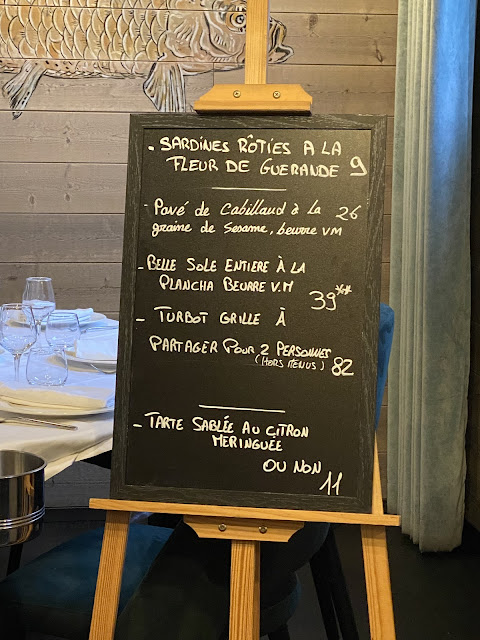 . SARDINES RÔTIES A LA
FLEUR DE GUERANDE 9
- Pavé de Cabillaud à la 26
graine de Sesame, beurre VM
- BELLE SOLE ENTIERE À LA
PLANCHA BEURRE V.M
39**
- TURBOT GRILLE À
PARTAGER POUR 2 PERSONNES
(HORS MENUS) 82
- TARTE SABLÉE AU CITRON
MERINGUÉE
OU NON 11